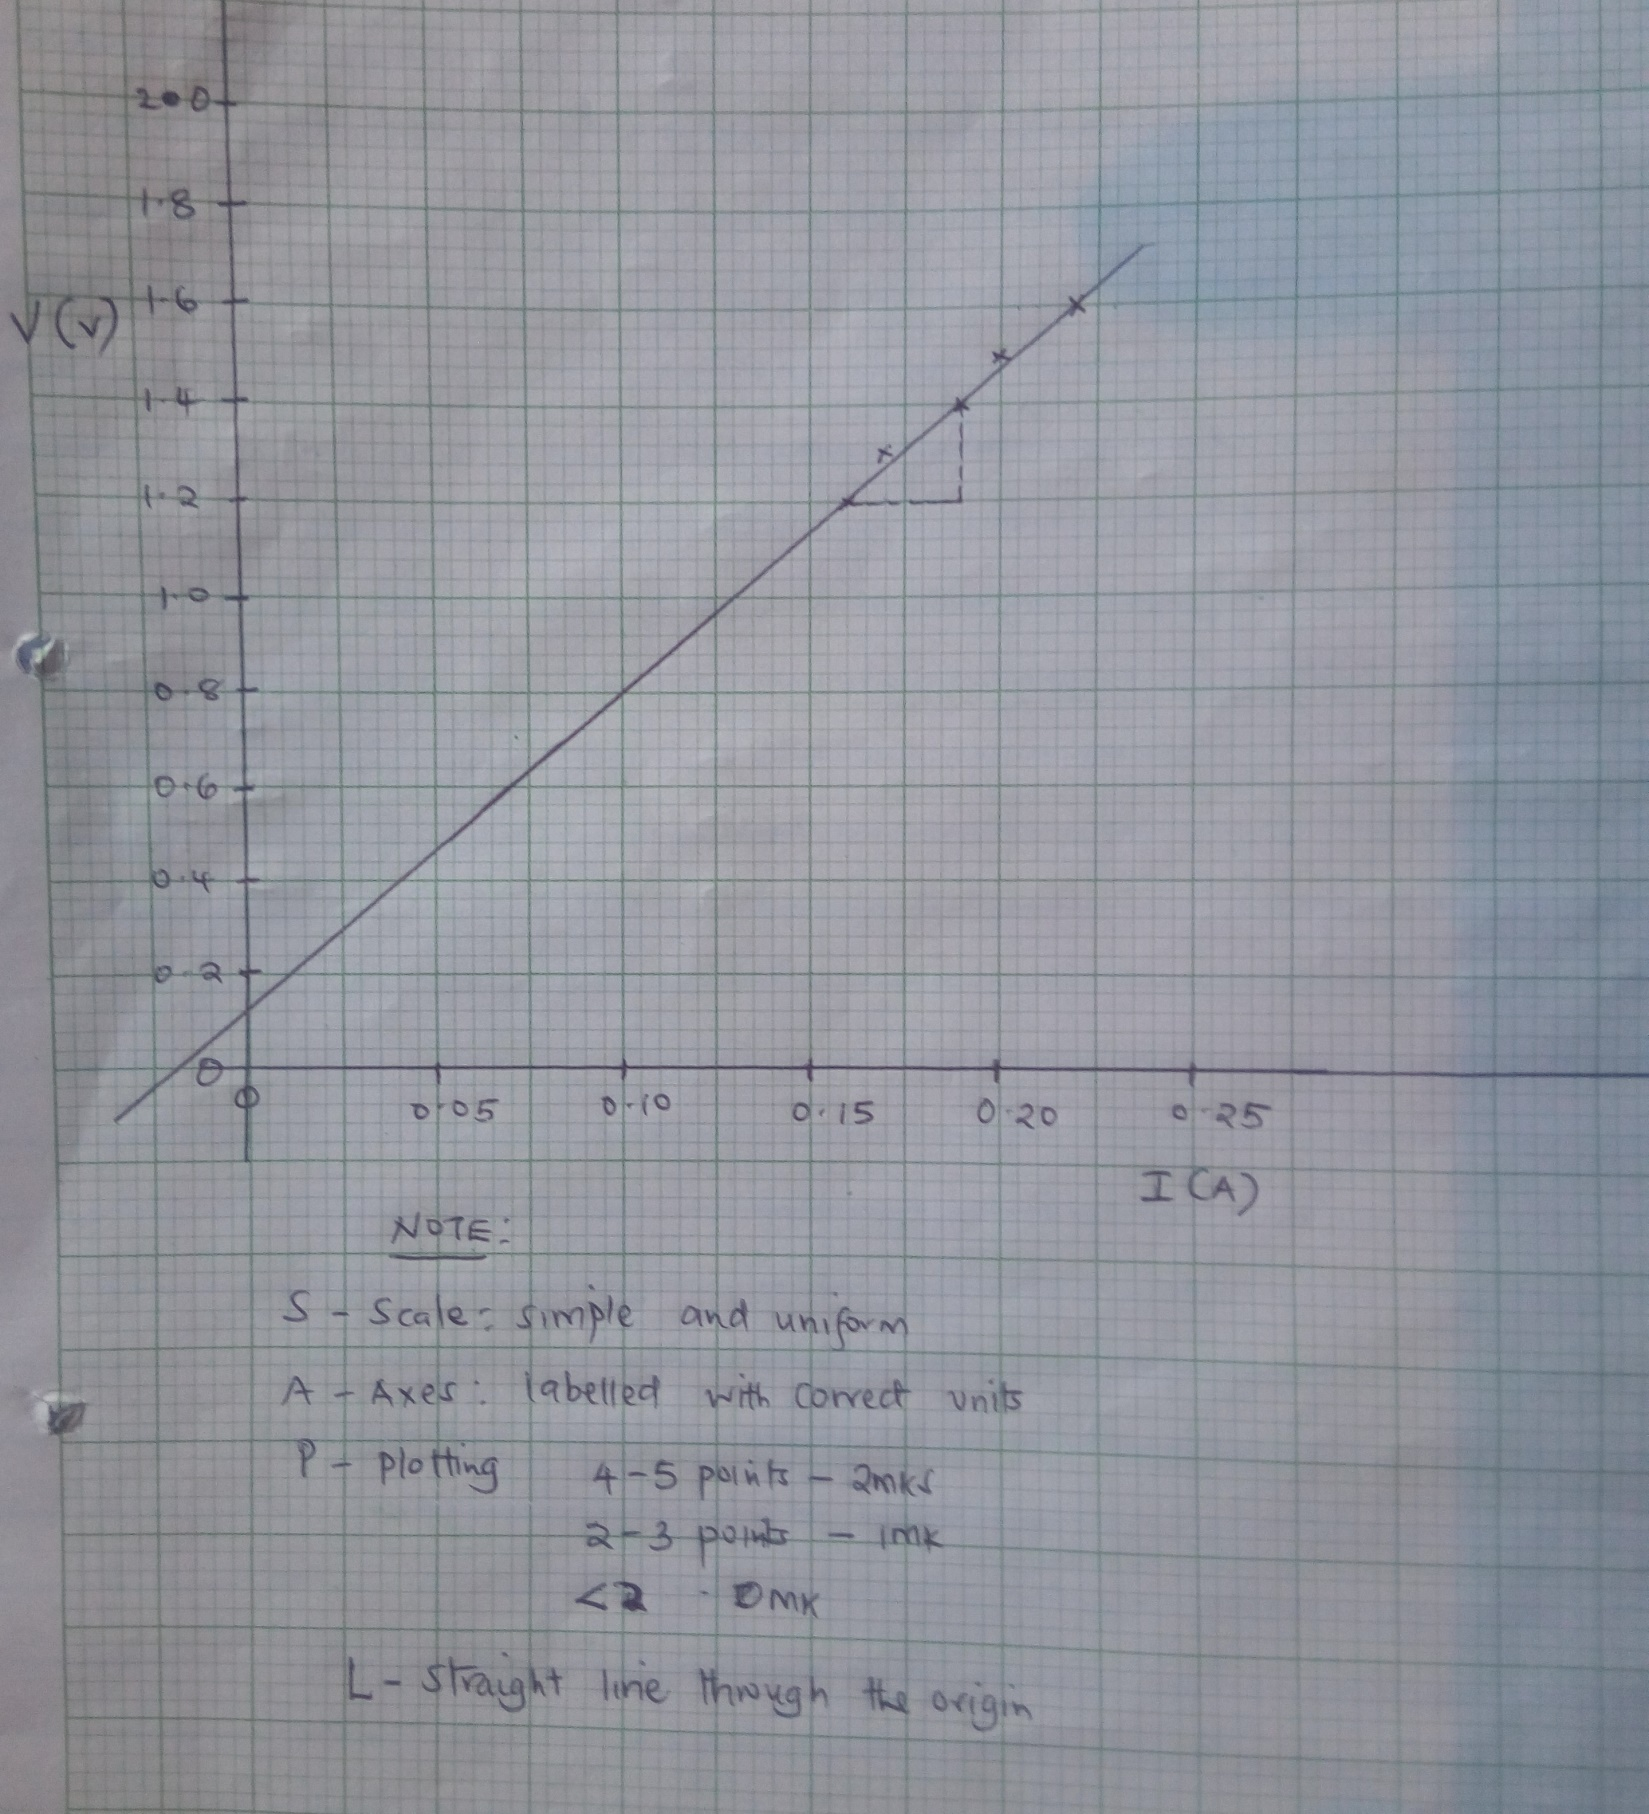 2.0
1.8
V(v) 1.6
1.4
1.2
1.0
0.8
0.6
0.4
0.2
0
0 0.05 0.10 0.15 0.20 0.25
I (A)
NOTE:
S - Scale: simple and uniform
A - Axes: labelled with correct units
P - plotting 4-5 points - 2mks
2-3 points - 1mk
<2 - 0mk
L - Straight line through the origin